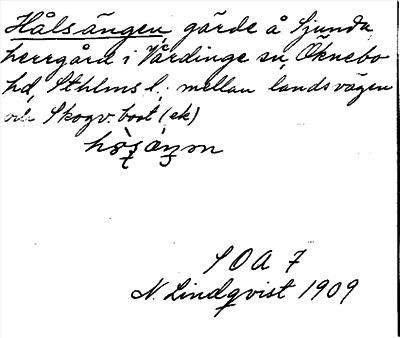 Hålsängen gärde å Sjunda
herrgård i Vårdinge sn, Öknebo
hd, Sthlms l. mellan landsvägen
och Skogv.bost (ek)
SOA 7
N. Lindqvist 1909